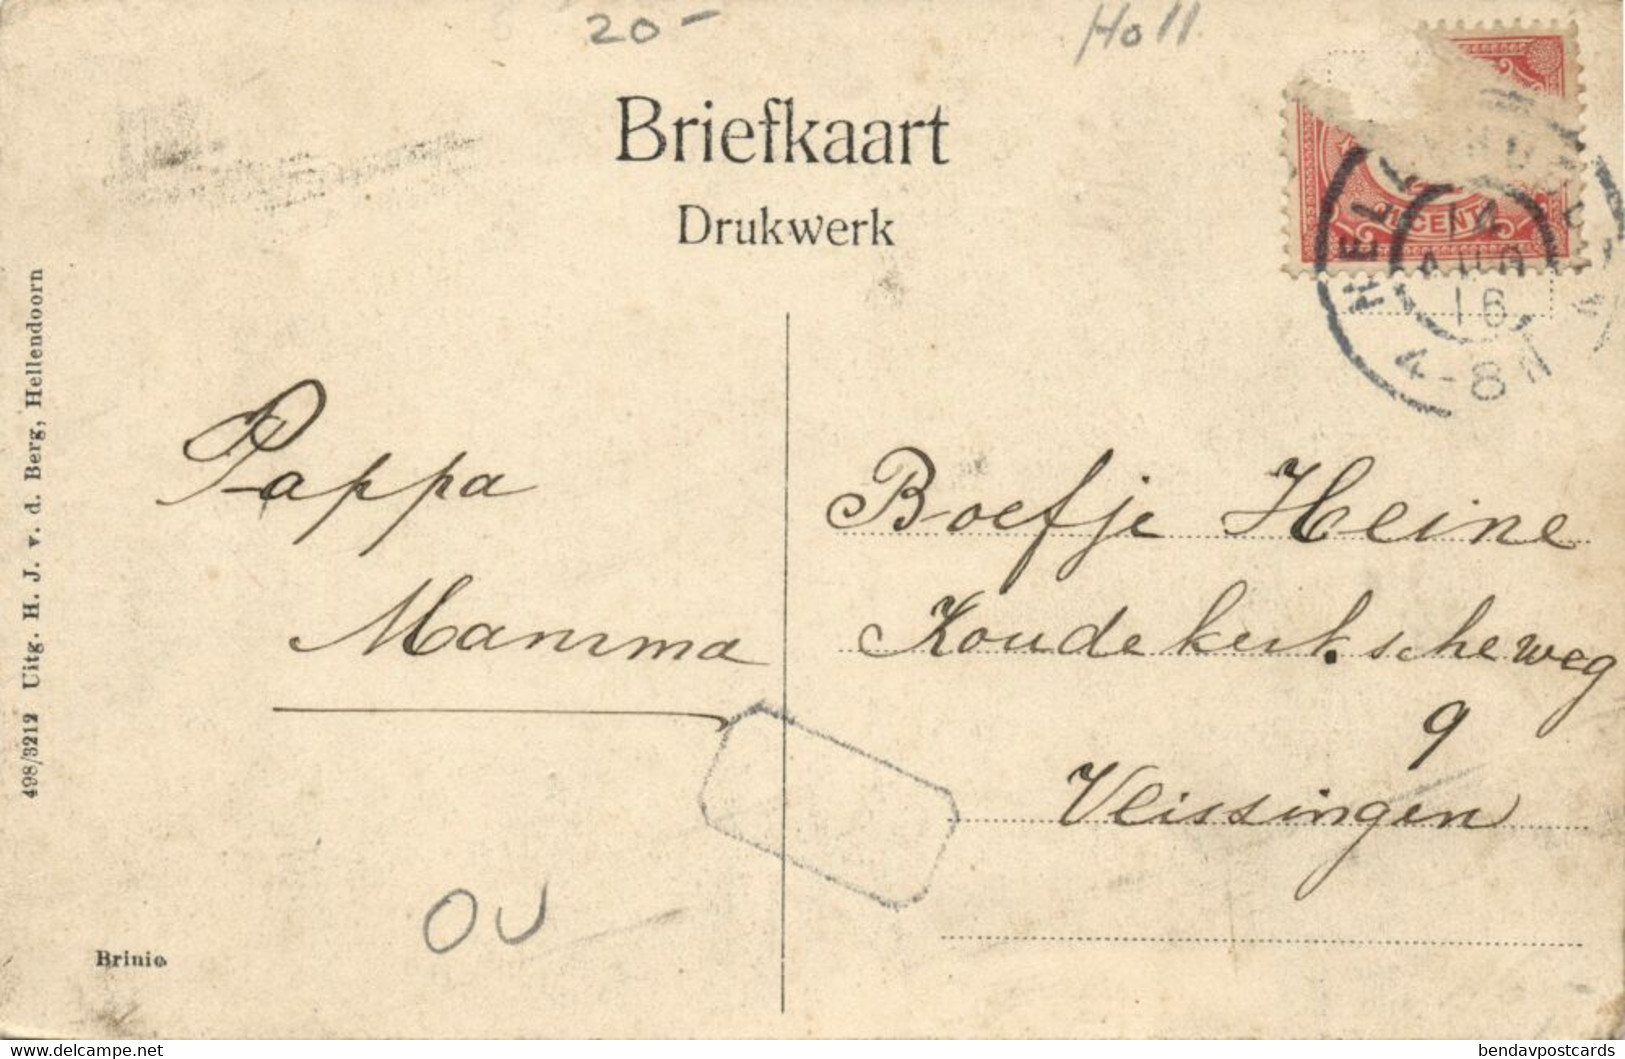 20-
Holl
Briefkaart
Drukwerk
1 CENT
14
AUG
16
4-8N
498/3212 Uitg. H. J. v. d. Berg, Hellendoorn
Pappa
Mamma
Boefje Heine
Koudekerk.scheweg
9
Vlissingen
OU
Brinio
delcampe.net
bendavpostcards